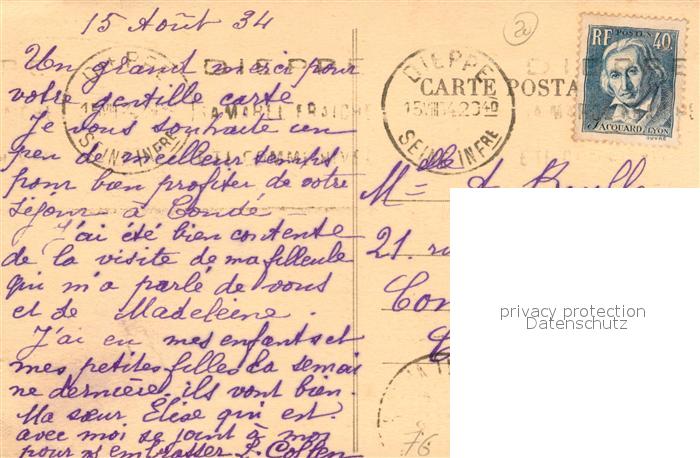 15 Août 34
Un grand merci pour
votre gentille carte
Je vous souhaite un
peu de meilleur temps
pour bien profiter de votre
séjour à Condé
J'ai été bien contente
de la visite de ma filleule
qui m'a parlé de vous
et de Madeleine.
J'ai eu mes enfants et
mes petites filles la semai
ne dernière. ils vont bien.
Ma sœur Elise qui est
avec moi se joint à moi
pour vs embrasser
DIEPPE
SA MARÉE FRAICHE
DIEPPE
SEINE INFRE
CARTE POSTA
RF POSTES 40c
JACQUARD LYON
DIEPPE
Melle
21. ru
Con
76
20
privacy protection
Datenschutz